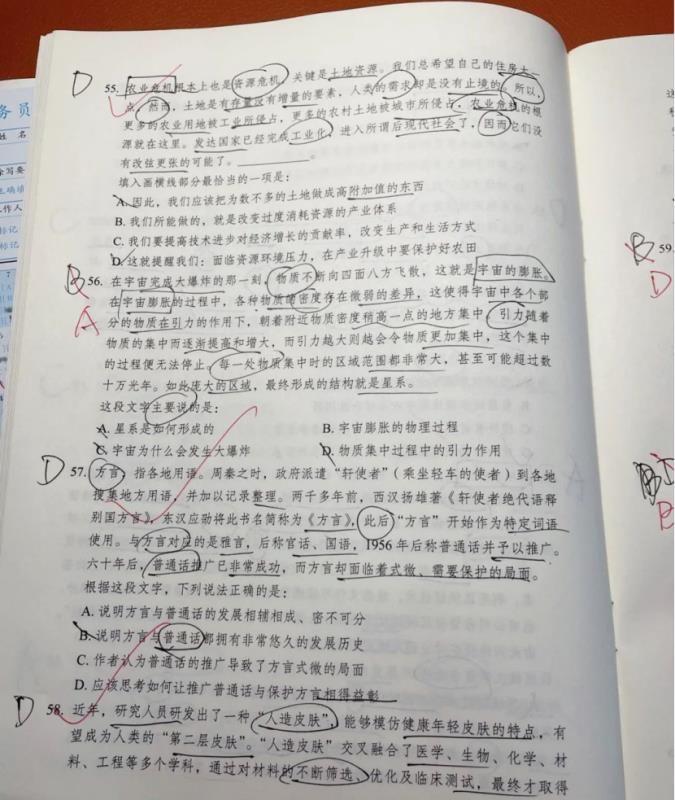 D 55. 农业危机根本上也是资源危机，关键是土地资源。我们总希望自己的住房大一
点，然而，土地是有存量没有增量的要素，人类的需求却是没有止境的。所以，
更多的农业用地被工业所侵占，更多的农村土地被城市所侵占，农业危机的根
源就在这里。发达国家已经完成工业化，进入所谓后现代社会了，因而它们没
有改弦更张的可能了。____________。
填入画横线部分最恰当的一项是：
A. 因此，我们应该把为数不多的土地做成高附加值的东西
B. 我们所能做的，就是改变过度消耗资源的产业体系
C. 我们要提高技术进步对经济增长的贡献率，改变生产和生活方式
D. 这就提醒我们：面临资源环境压力，在产业升级中要保护好农田
B 56. 在宇宙完成大爆炸的那一刻，物质不断向四面八方飞散，这就是宇宙的膨胀。
A
在宇宙膨胀的过程中，各种物质的密度存在微弱的差异，这使得宇宙中各个部
分的物质在引力的作用下，朝着附近物质密度稍高一点的地方集中，引力随着
物质的集中而逐渐提高和增大，而引力越大则越会令物质更加集中，这个集中
的过程便无法停止。每一处物质集中时的区域范围都非常大，甚至可能超过数
十万光年。如此庞大的区域，最终形成的结构就是星系。
这段文字主要说的是：
A. 星系是如何形成的 B. 宇宙膨胀的物理过程
C. 宇宙为什么会发生大爆炸 D. 物质集中过程中的引力作用
D 57. 方言，指各地用语。周秦之时，政府派遣“轩使者”（乘坐轻车的使者）到各地
搜集地方用语，并加以记录整理。两千多年前，西汉扬雄著《轩使者绝代语释
别国方言》，东汉应劭将此书名简称为《方言》，此后“方言”开始作为特定词语
使用。与方言对应的是雅言，后称官话、国语，1956 年后称普通话并予以推广。
六十年后，普通话推广已非常成功，而方言却面临着式微、需要保护的局面。
根据这段文字，下列说法正确的是：
A. 说明方言与普通话的发展相辅相成、密不可分
B. 说明方言与普通话都拥有非常悠久的发展历史
C. 作者认为普通话的推广导致了方言式微的局面
D. 应该思考如何让推广普通话与保护方言相得益彰
D 58. 近年，研究人员研发出了一种“人造皮肤”，能够模仿健康年轻皮肤的特点，有
望成为人类的“第二层皮肤”。“人造皮肤”交叉融合了医学、生物、化学、材
料、工程等多个学科，通过对材料的不断筛选、优化及临床测试，最终才取得
务员
姓 名
标记
标记
这
B 59.
D